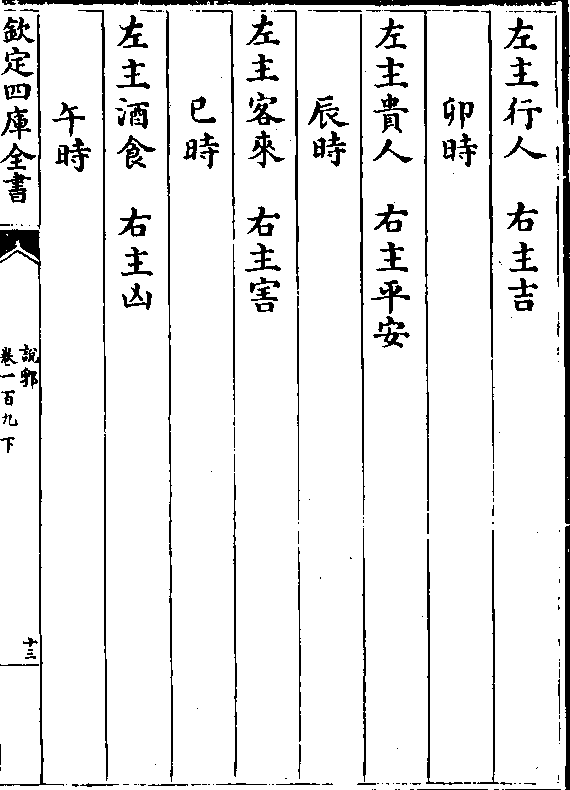 左主行人　右主吉
卯時
左主貴人　右主平安
辰時
左主客來　右主害
巳時
左主酒食　右主凶
午時
欽定四庫全書
說郛
卷一百九下
十三